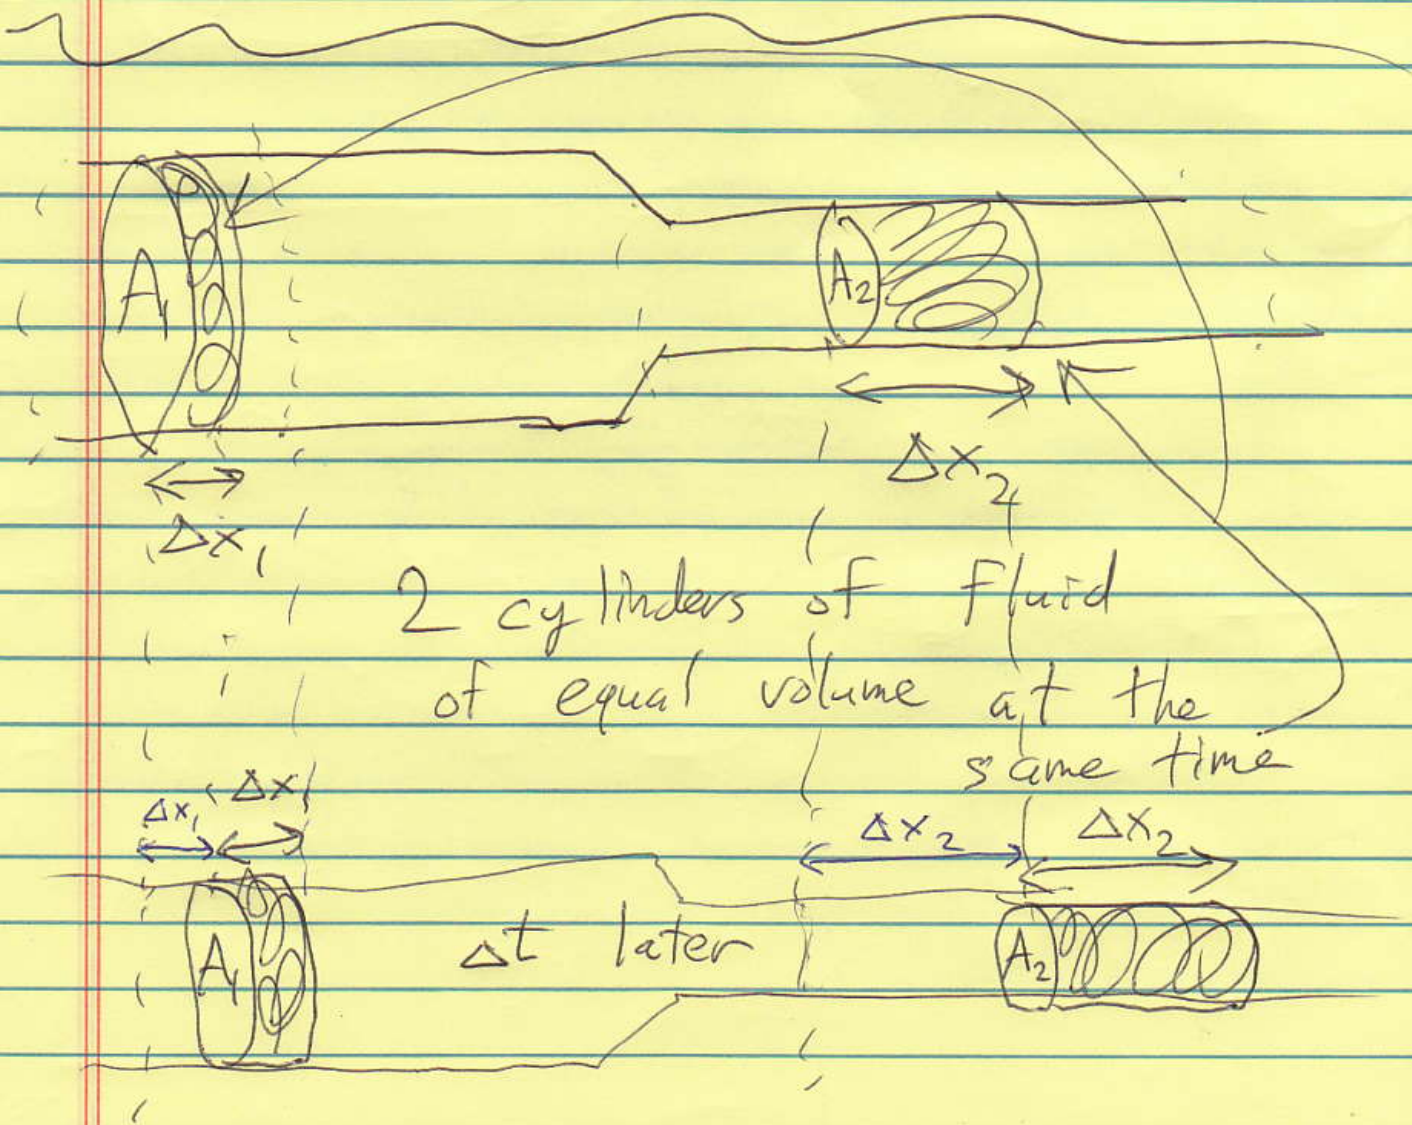 A₁
A₂
Δx₁
Δx₂
2 cylinders of fluid
of equal volume at the
same time
Δx₁
Δx₁
Δx₂
Δx₂
A₁
Δt later
A₂